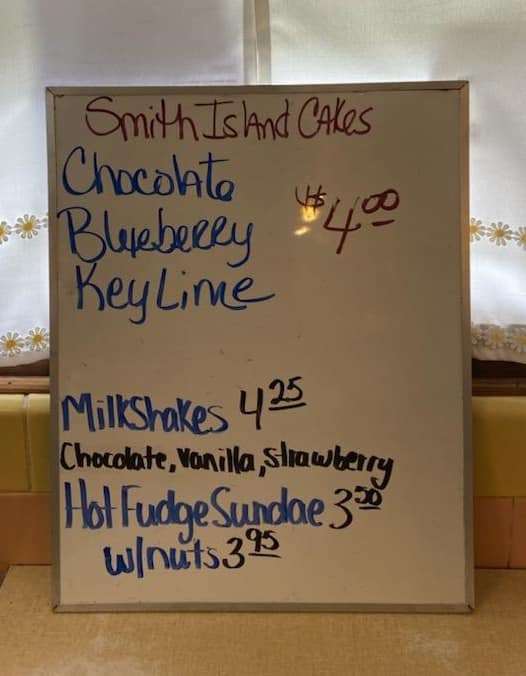 Smith Island Cakes
Chocolate
Blueberry $4.00
Key Lime
Milkshakes 4.25
Chocolate, Vanilla, Strawberry
Hot Fudge Sundae 3.50
w/nuts 3.95